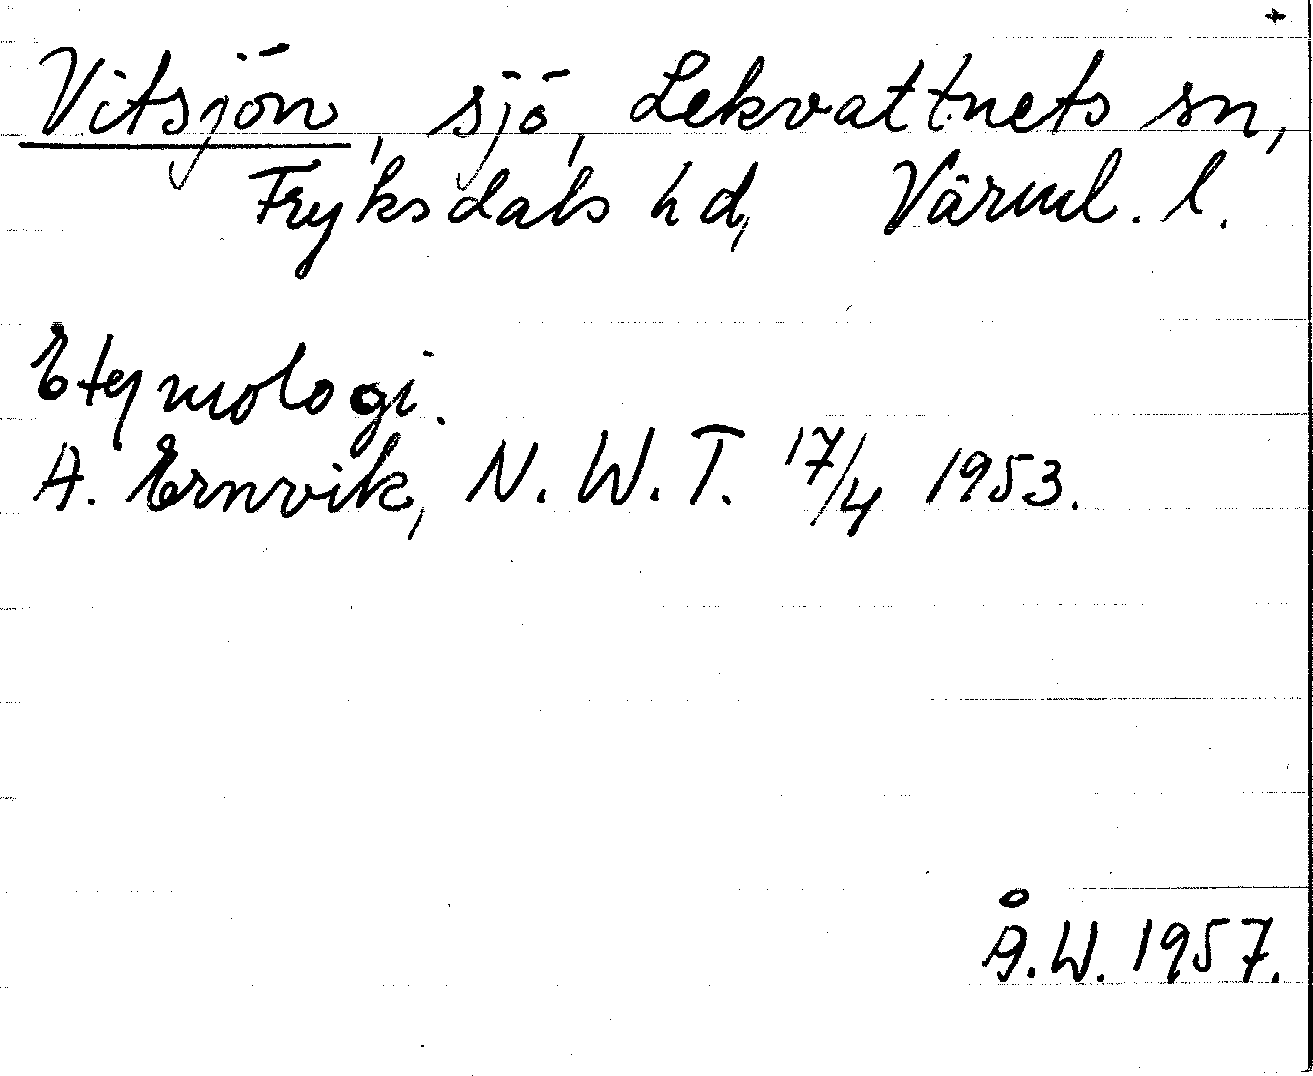 Vitsjön, sjö, Lekvattnets sn,
Fryksdals hd, Värml. l.
Etymologi.
A. Ernvik, N. W. T. 17/4 1953.
Å. W. 1957.